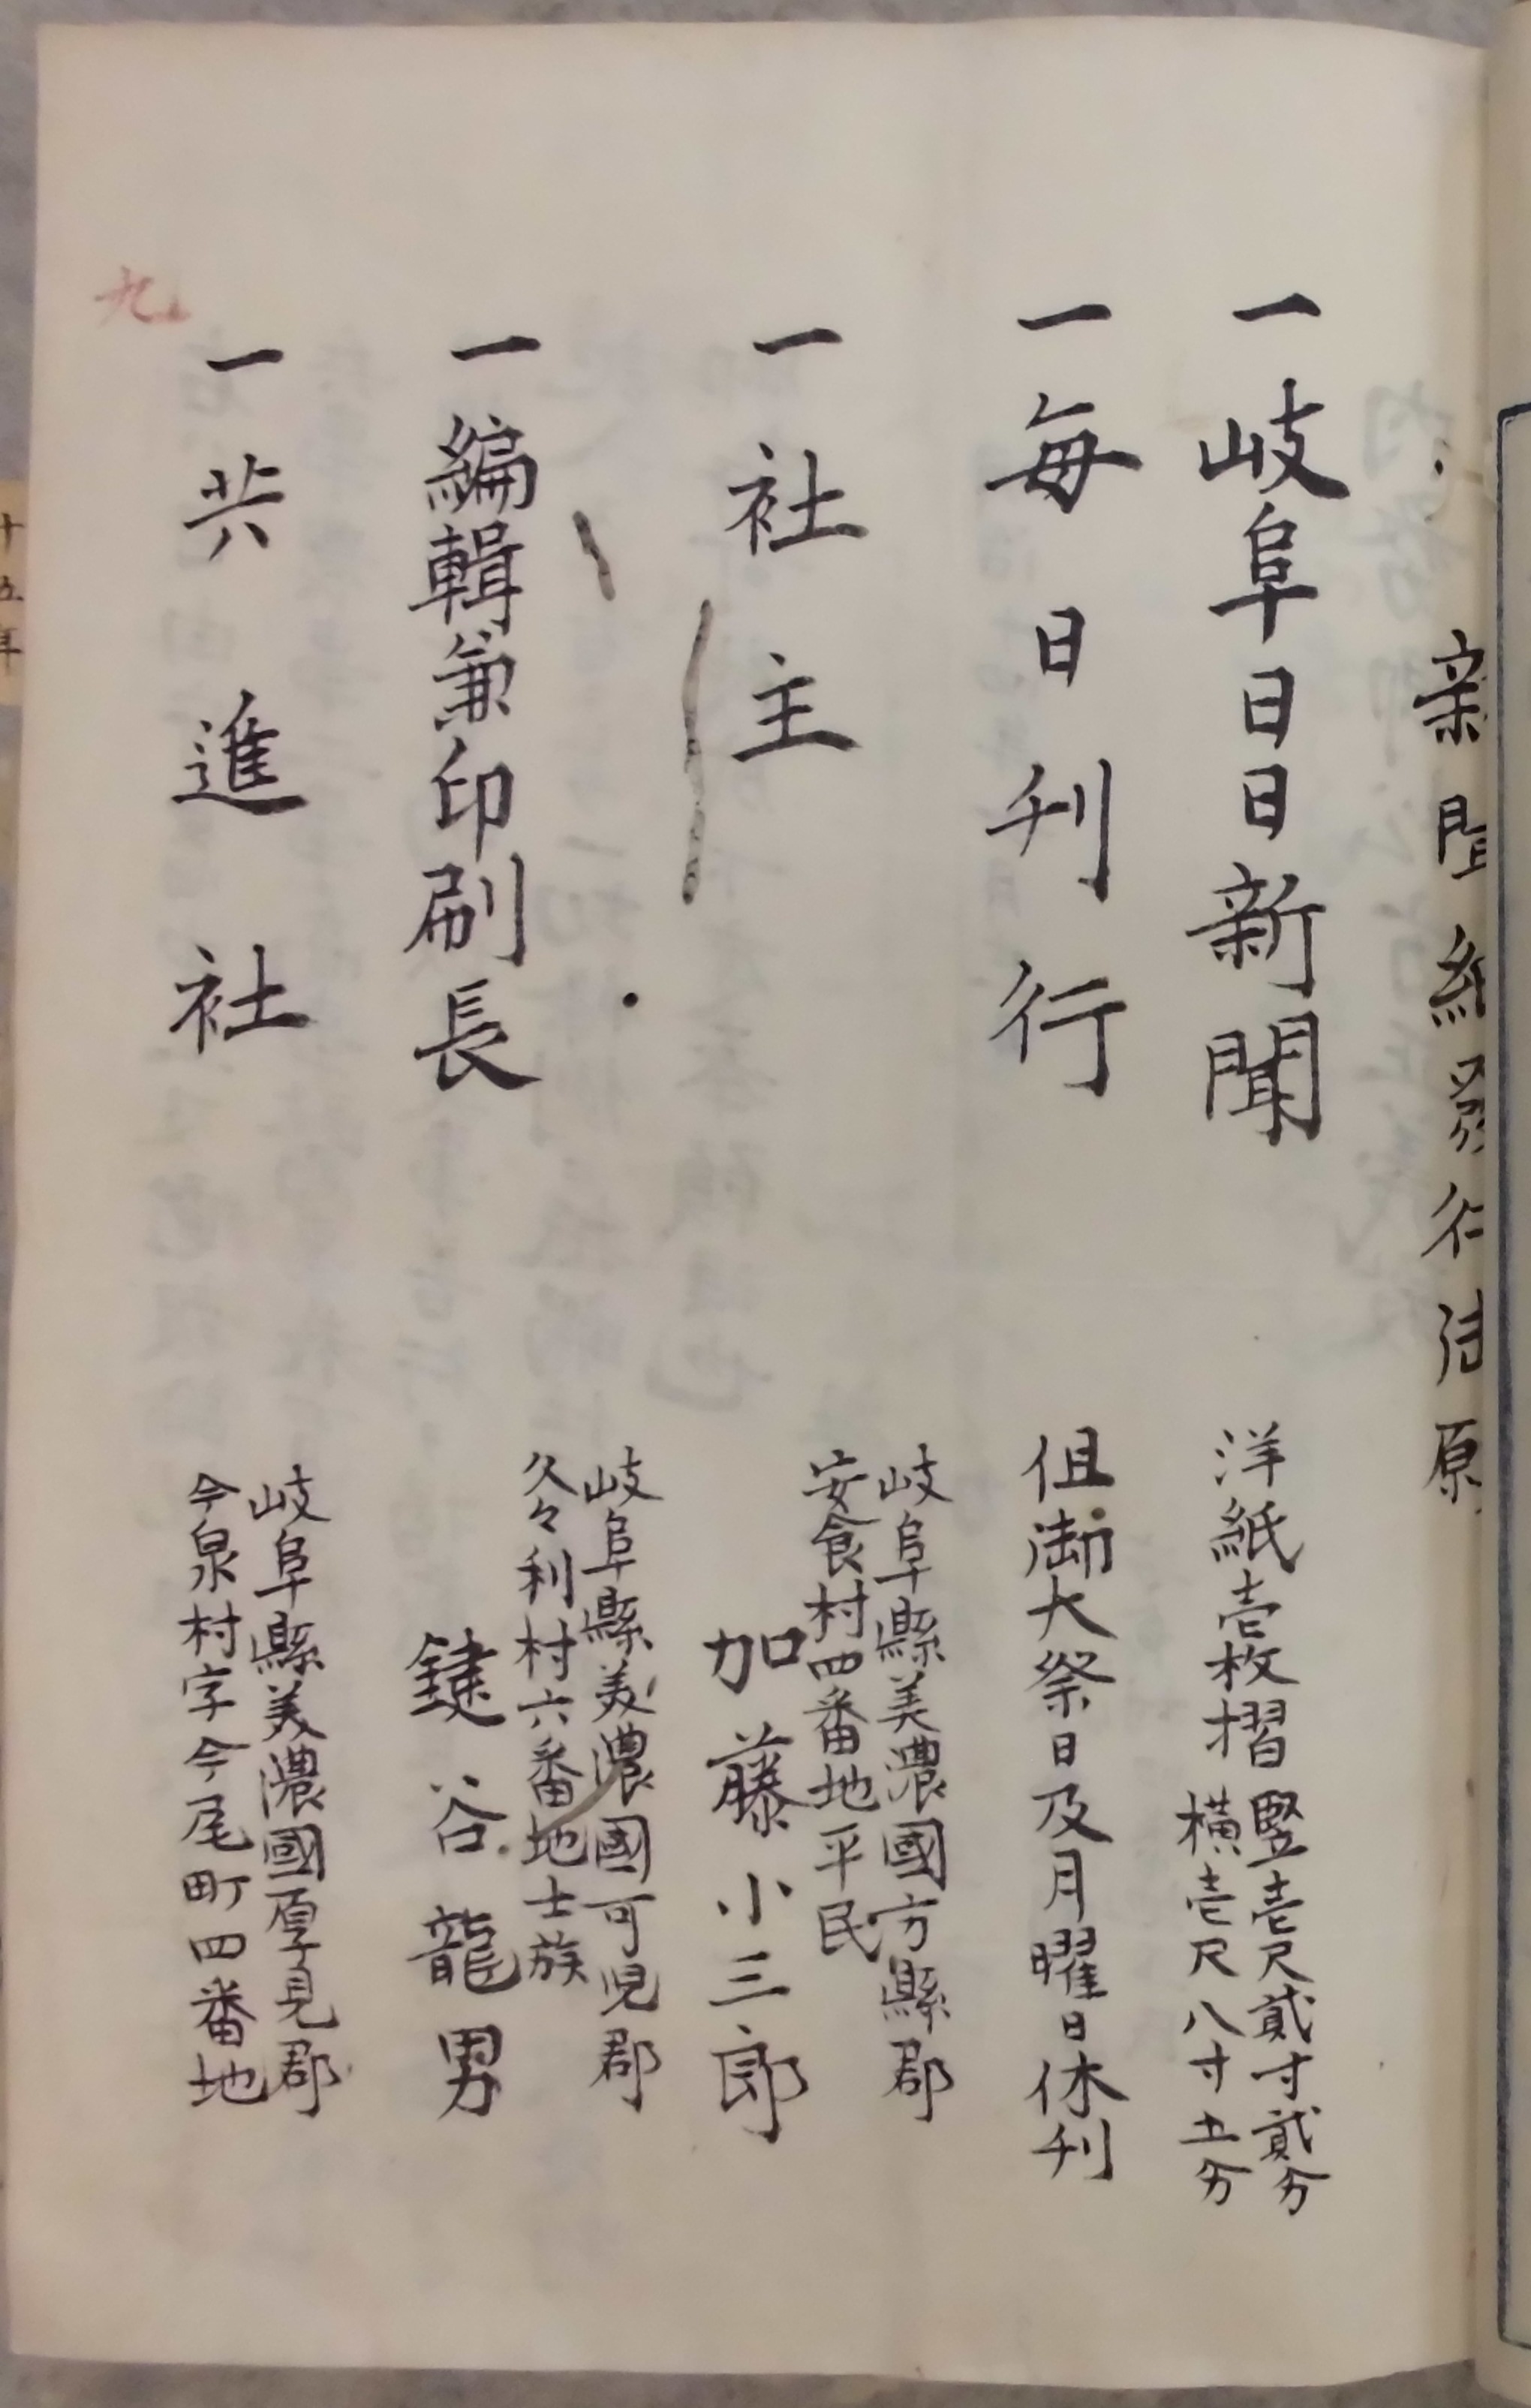 新聞紙發行御原
一岐阜日日新聞
洋紙壱枚摺
竪壱尺貳寸貳分
横壱尺八寸五分
一毎日刊行
但御大祭日及月曜日休刊
一社主
岐阜縣美濃國方縣郡
安食村四番地平民
加藤小三郎
一編輯兼印刷長
岐阜縣美濃國可児郡
久々利村六番地士族
鍵谷龍男
一共進社
岐阜縣美濃國厚見郡
今泉村字今尾町四番地
九
十五年